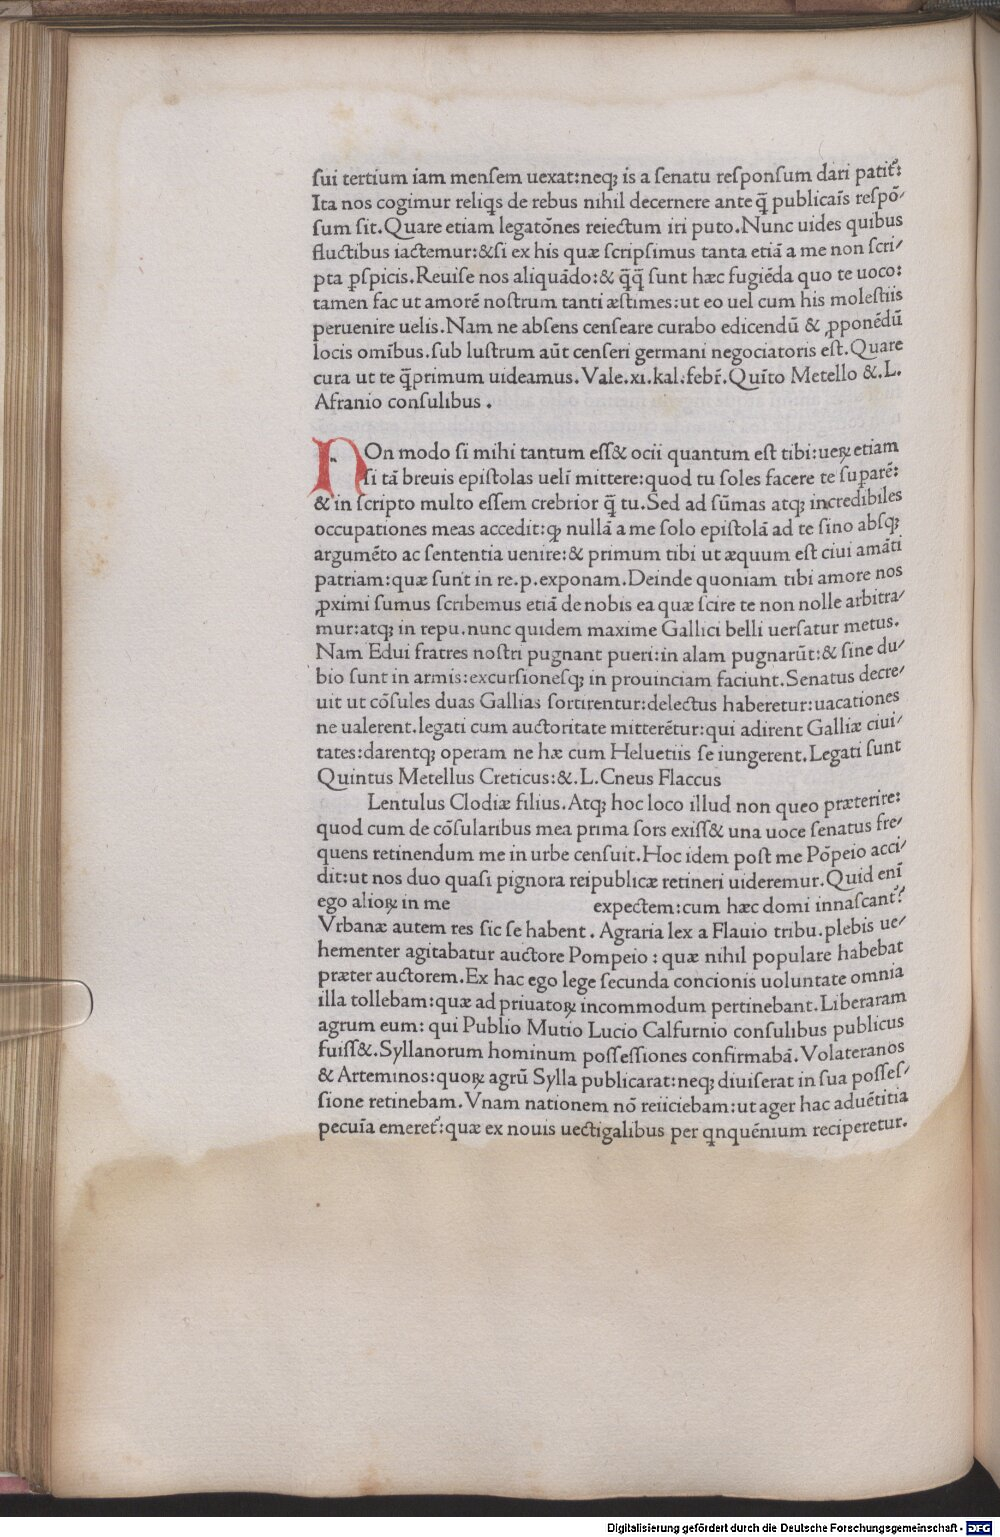 ſui tertium iam menſem uexat:neq; is a ſenatu reſponſum dari patit̃:
Ita nos cogimur reliq̢s de rebus nihil decernere ante q̃ publicaĩs reſpõ⸗
ſum ſit.Quare etiam legatõnes reiectum iri puto.Nunc uides quibus
fluctibus iactemur:&ſi ex his quæ ſcripſimus tanta etiã a me non ſcri⸗
pta ꝑſpicis.Reuiſe nos aliquãdo:& q̃q̃ ſunt hæc fugiẽda quo te uoco:
tamen fac ut amorẽ noſtrum tanti æſtimes:ut eo uel cum his moleſtiis
peruenire uelis.Nam ne abſens cenſeare curabo edicendũ & ꝓponẽdũ
locis omĩbus.ſub luſtrum aũt cenſeri germani negociatoris eſt.Quare
cura ut te q̃primum uideamus.Vale.xi.kal.febr̃.Quĩto Metello &.L.
Afranio conſulibus .
NOn modo ſi mihi tantum eſſ& ocii quantum eſt tibi:ueꝝ etiam
ſi tã breuis epiſtolas uelĩ mittere:quod tu ſoles facere te ſuparẽ:
& in ſcripto multo eſſem crebrior q̃ tu.Sed ad ſũmas atq; incredibiles
occupationes meas accedit:ꝙ nullã a me ſolo epiſtolã ad te ſino abſq;
argumẽto ac ſententia uenire:& primum tibi ut æquum eſt ciui amãti
patriam:quæ ſunt in re.p.exponam.Deinde quoniam tibi amore nos
ꝓximi ſumus ſcribemus etiã de nobis ea quæ ſcire te non nolle arbitra⸗
mur:atq; in repu.nunc quidem maxime Gallici belli uerſatur metus.
Nam Edui fratres noſtri pugnant pueri:in alam pugnarũt:& ſine du⸗
bio ſunt in armis:excurſioneſq; in prouinciam faciunt.Senatus decre⸗
uit ut cõſules duas Gallias ſortirentur:delectus haberetur:uacationes
ne ualerent.legati cum auctoritate mitterẽtur:qui adirent Galliæ ciui⸗
tates:darentq; operam ne hæ cum Heluetiis ſe iungerent.Legati ſunt
Quintus Metellus Creticus:&.L.Cneus Flaccus
Lentulus Clodiæ filius.Atq; hoc loco illud non queo præterire:
quod cum de cõſularibus mea prima ſors exiſſ& una uoce ſenatus fre⸗
quens retinendum me in urbe cenſuit.Hoc idem poſt me Põpeio acci⸗
dit:ut nos duo quaſi pignora reipublicæ retineri uideremur.Quid enĩ
ego alioꝝ in me expectem:cum hæc domi innaſcant̃?
Vrbanæ autem res ſic ſe habent . Agraria lex a Flauio tribu.plebis ue⸗
hementer agitabatur auctore Pompeio : quæ nihil populare habebat
præter auctorem.Ex hac ego lege ſecunda concionis uoluntate omnia
illa tollebam:quæ ad priuatoꝝ incommodum pertinebant.Liberaram
agrum eum: qui Publio Mutio Lucio Calfurnio conſulibus publicus
fuiſſ&.Syllanorum hominum poſſeſſiones confirmabã.Volateranos
& Arteminos:quoꝝ agrũ Sylla publicarat:neq; diuiſerat in ſua poſſeſ⸗
ſione retinebam.Vnam nationem nõ reiiciebam:ut ager hac aduẽtitia
pecuĩa emeret̃:quæ ex nouis uectigalibus per qnquẽnium reciperetur.
Digitalisierung gefördert durch die Deutsche Forschungsgemeinschaft - DFG